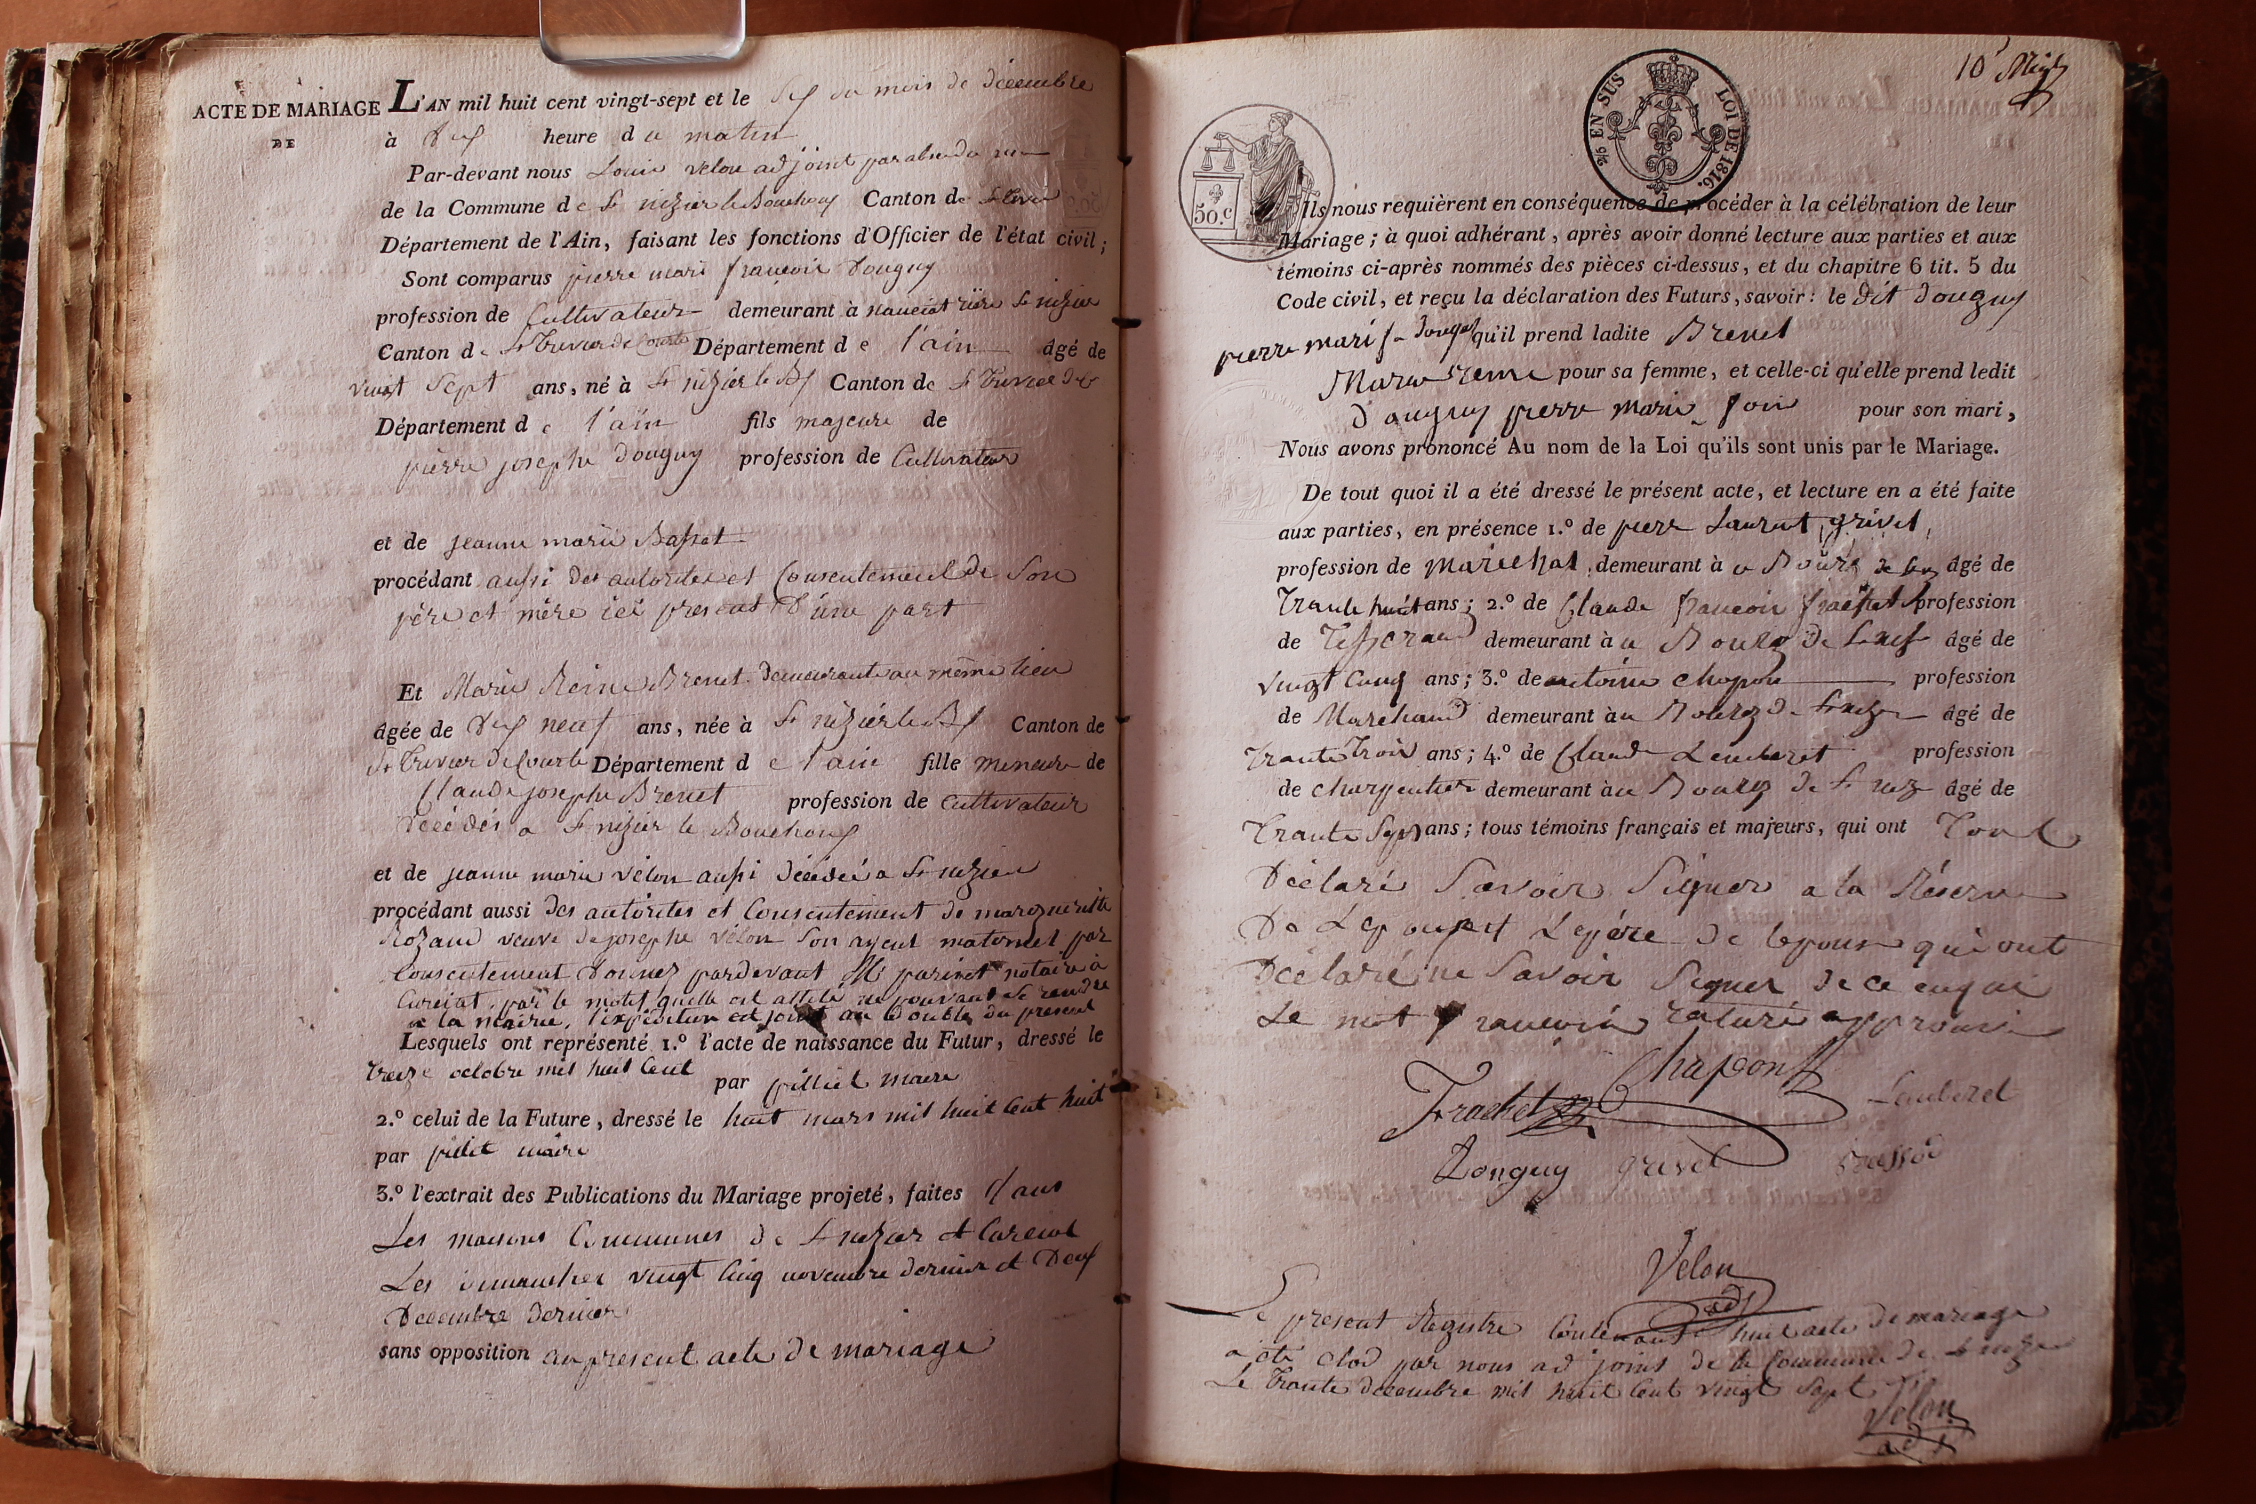 ACTE DE MARIAGE L'AN mil huit cent vingt-sept et le Six du mois de décembre
DE
à Dix heure du matin
Par-devant nous Louis velon adjoint par absence du
de la Commune de St nizier le Bouchoux Canton de St trivier
Département de l'Ain, faisant les fonctions d'Officier de l'état civil;
Sont comparus pierre mari françois Donguy
profession de Cultivateur demeurant à rière St nizier
Canton de St Trivier de Courte Département de l'ain âgé de
vingt Sept ans, né à St nizier le Bx Canton de St Trivier de
Département de l'ain fils majeure de
pierre josephe Donguy profession de Cultivateur
et de jeanne marie Bassat
procédant aussi des autorites et Consentement de Son
père et mère ici present D'une part
Et Marie Reine Brenet demeurante au même lieu
âgée de Dix neuf ans, née à St nizier le Bx Canton de
St Trivier de Courte Département de l'ain fille mineure de
Claude josephe Brenet profession de Cultivateur
Décédés a St nizier le Bouchoux
et de jeanne marie vélon aussi décédée a St nizier
procédant aussi des autorites et Consentement de margueritte
Rozand veuve de josephe vélon Son ayeul maternel par
Consentement donnez pardevant Me parinet notaire a
Cureiat, par le motif quelle est ne pouvant se rendre
a la mairie, l'expédition est joint au double du present
Lesquels ont représenté 1.º l'acte de naissance du Futur, dressé le
treize octobre mil huit Cent par pilliet maire
2.º celui de la Future, dressé le huit mars mil huit Cent huit
par pillit maire
3.º l'extrait des Publications du Mariage projeté, faites Dans
Les maisons Communes de St nizier et Cureiat
Les dimanches vingt Cinq novembre dernier et Deux
Decembre Dernier
sans opposition au present acte de mariage
10e
2/5 EN SUS LOI DE 1816.
50.c
Ils nous requièrent en conséquence de procéder à la célébration de leur
Mariage; à quoi adhérant, après avoir donné lecture aux parties et aux
témoins ci-après nommés des pièces ci-dessus, et du chapitre 6 tit. 5 du
Code civil, et reçu la déclaration des Futurs, savoir: le dit donguy
pierre mari qu'il prend ladite Brenet
Marie reine pour sa femme, et celle-ci qu'elle prend ledit
donguy pierre Marie pour son mari,
Nous avons prononcé Au nom de la Loi qu'ils sont unis par le Mariage.
De tout quoi il a été dressé le présent acte, et lecture en a été faite
aux parties, en présence 1.º de pierr Laurent grivet,
profession de Marechal demeurant à âgé de
Trante huit ans; 2.º de Claude françois frachet profession
de Tisserand demeurant à u Bourg de St niz âgé de
vingt Cinq ans; 3.º de antoine chapon profession
de Marchand demeurant à u Bourg de St niz âgé de
Trante trois ans; 4.º de Claude Lemberet profession
de charpentier demeurant à u Bourg de St niz âgé de
Trante Sept ans; tous témoins français et majeurs, qui ont Tous
Déclaré Savoir Signer a la Réserve
De Lepouse et Lepère de lepouse qui ont
Déclaré ne Savoir Signer de ce enquis
Le mot françois raturé approuvé
Chapon
frachet Lanberet
Donguy grivet
Velon
adj
Le present Registre Contenant huit acte de mariage
a été clos par nous adjoint de la Commune de St nizier
Le Trante decembre mil huit Cent vingt Sept
Velon
adj